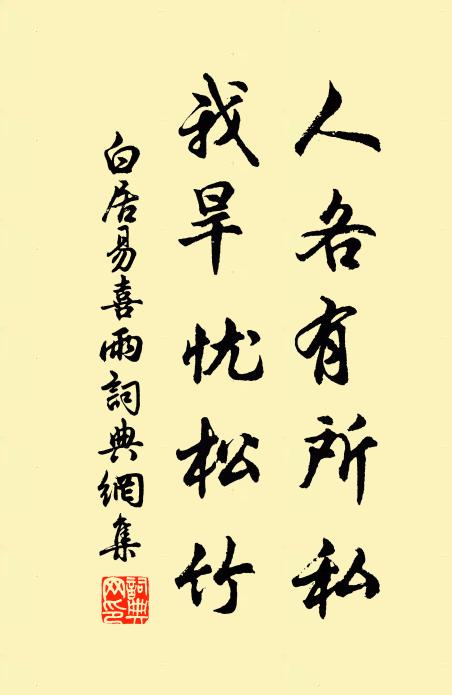 人各有所私
我旱忧松竹
白居易喜雨詞典網集
詞典网印